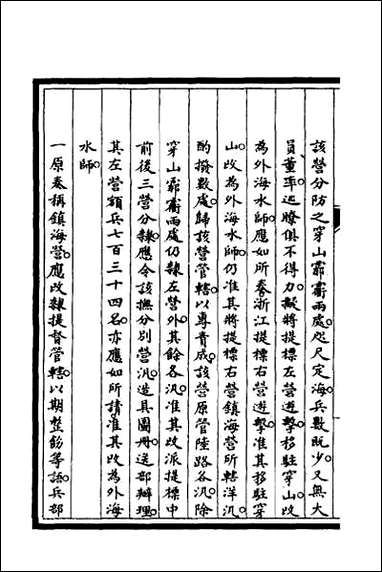 該營分防之穿山霩𩆸兩處。咫尺定海。兵數既少。又無大
員董率。遥瞭俱不得力。擬將提標左營遊擊。移駐穿山。改
為外海水師。應如所奏。浙江提標右營遊擊。准其移駐穿
山。改為外海水師。仍准其將提標右營鎮海營所轄洋汛
酌撥數處。歸該營管轄。以專責成。該營原管陸路各汛。除
穿山霩𩆸兩處。仍隸左營外。其餘各汛。准其改派提標中
前後三營分隸。應令該撫分別營汛。造具圖冊。送部辦理。
其左營額兵七百三十四名。亦應如所請。准其改為外海
水師。
一原奏稱鎮海營。應改隸提督管轄。以期整飭等語。兵部